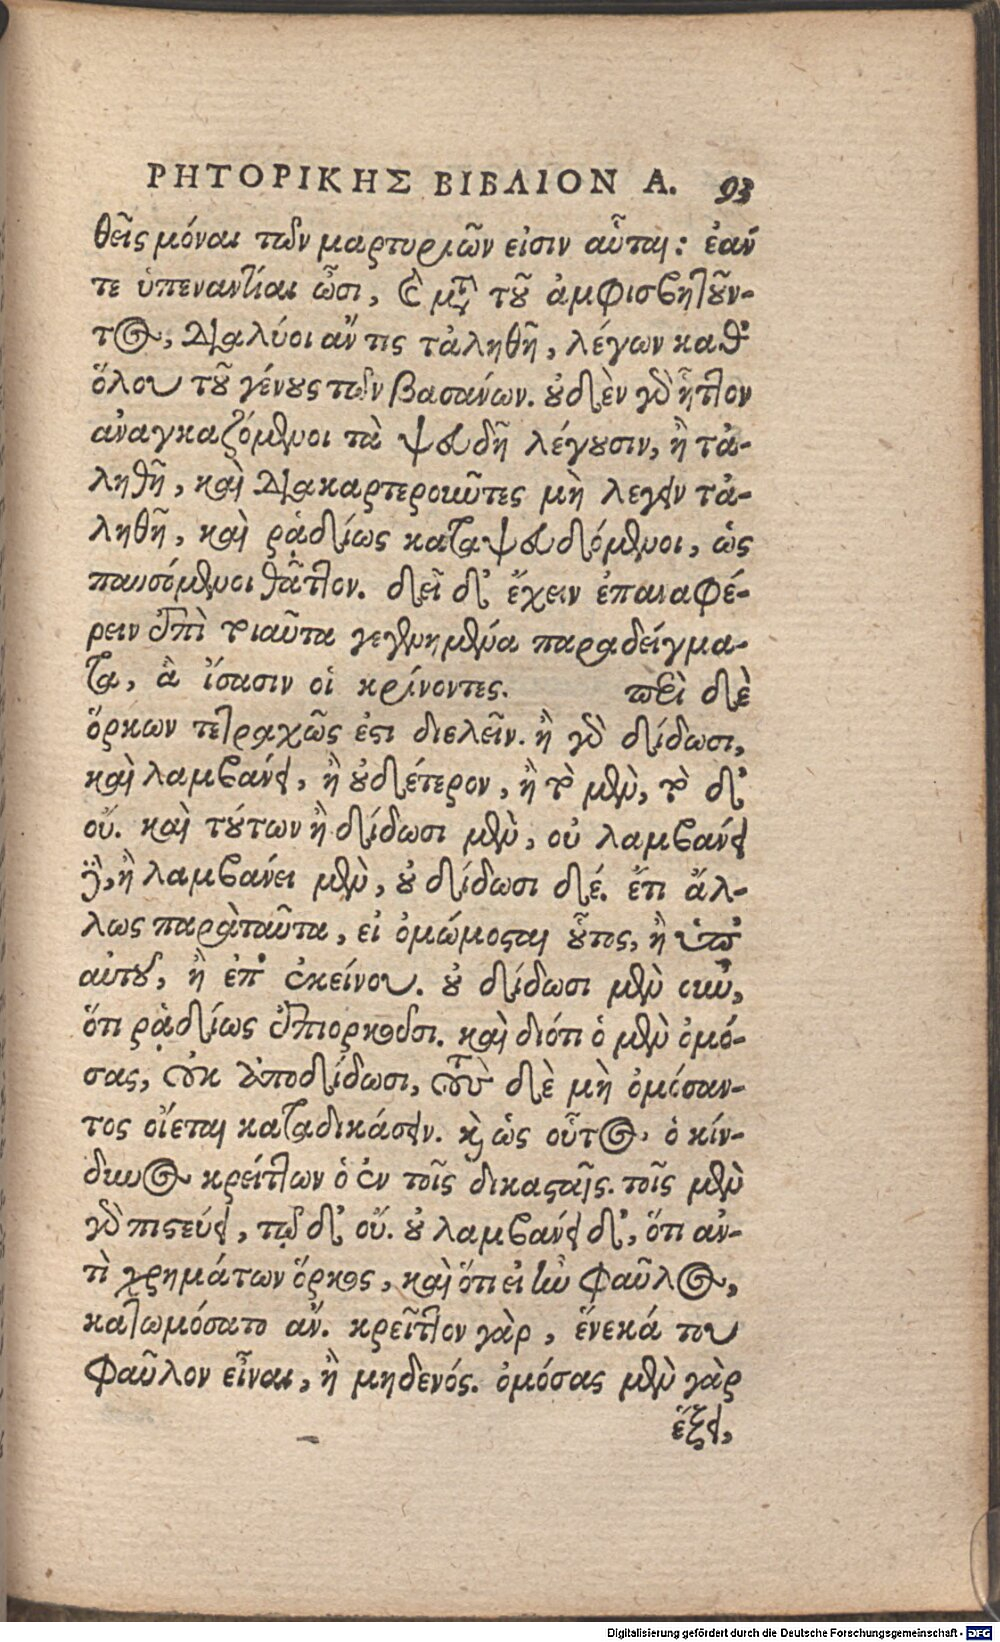 ΡΗΤΟΡΙΚΗΣ ΒΙΒΛΙΟΝ Α. 93
θεῖς μόναι τῶν μαρτυριῶν εἰσιν αὗται: ἐάν
τε ὑπεναντίαι ὦσι, καὶ μετὰ τοῦ ἀμφισβητοῦν-
τος, διαλύοι ἄν τις τἀληθῆ, λέγων καθ'
ὅλου τοῦ γένους τῶν βασάνων. οὐδὲν γὰρ ἧττον
ἀναγκαζόμενοι τὰ ψευδῆ λέγουσιν, ἢ τἀ-
ληθῆ, καὶ διακαρτεροῦντες μὴ λέγειν τἀ-
ληθῆ, καὶ ῥᾳδίως καταψευδόμενοι, ὡς
παυσόμενοι θᾶττον. δεῖ δ' ἔχειν ἐπαναφέ-
ρειν ἐπὶ τοιαῦτα γεγενημένα παραδείγμα-
τα, ἃ ἴσασιν οἱ κρίνοντες. περὶ δὲ
ὅρκων τετραχῶς ἐστι διελεῖν. ἢ γὰρ δίδωσι,
καὶ λαμβάνει, ἢ οὐδέτερον, ἢ τὸ μὲν, τὸ δ'
οὔ. καὶ τούτων ἢ δίδωσι μὲν, οὐ λαμβάνει
δὲ, ἢ λαμβάνει μὲν, οὐ δίδωσι δέ. ἔτι ἄλ-
λως παρὰ ταῦτα, εἰ ὀμώμοσται οὗτος, ἢ ὑπ'
αὐτοῦ, ἢ ἐπ' ἐκείνου. οὐ δίδωσι μὲν οὖν,
ὅτι ῥᾳδίως ἐπιορκοῦσι. καὶ διότι ὁ μὲν ὀμό-
σας, οὐκ ἀποδίδωσι, τοῦ δὲ μὴ ὀμόσαν-
τος οἴεται καταδικάσειν. καὶ ὡς οὗτος, ὁ κίν-
δυνος κρείττων ὁ ἐν τοῖς δικασταῖς. τοῖς μὲν
γὰρ πιστεύει, τῷ δ' οὔ. οὐ λαμβάνει δ', ὅτι ἀν-
τὶ χρημάτων ὅρκος, καὶ ὅτι εἰ ἦν φαῦλος,
κατωμόσατο ἄν. κρεῖττον γὰρ, ἕνεκά του
φαῦλον εἶναι, ἢ μηδενός. ὀμόσας μὲν γὰρ
ἕξει,
Digitalisierung gefördert durch die Deutsche Forschungsgemeinschaft - DFG